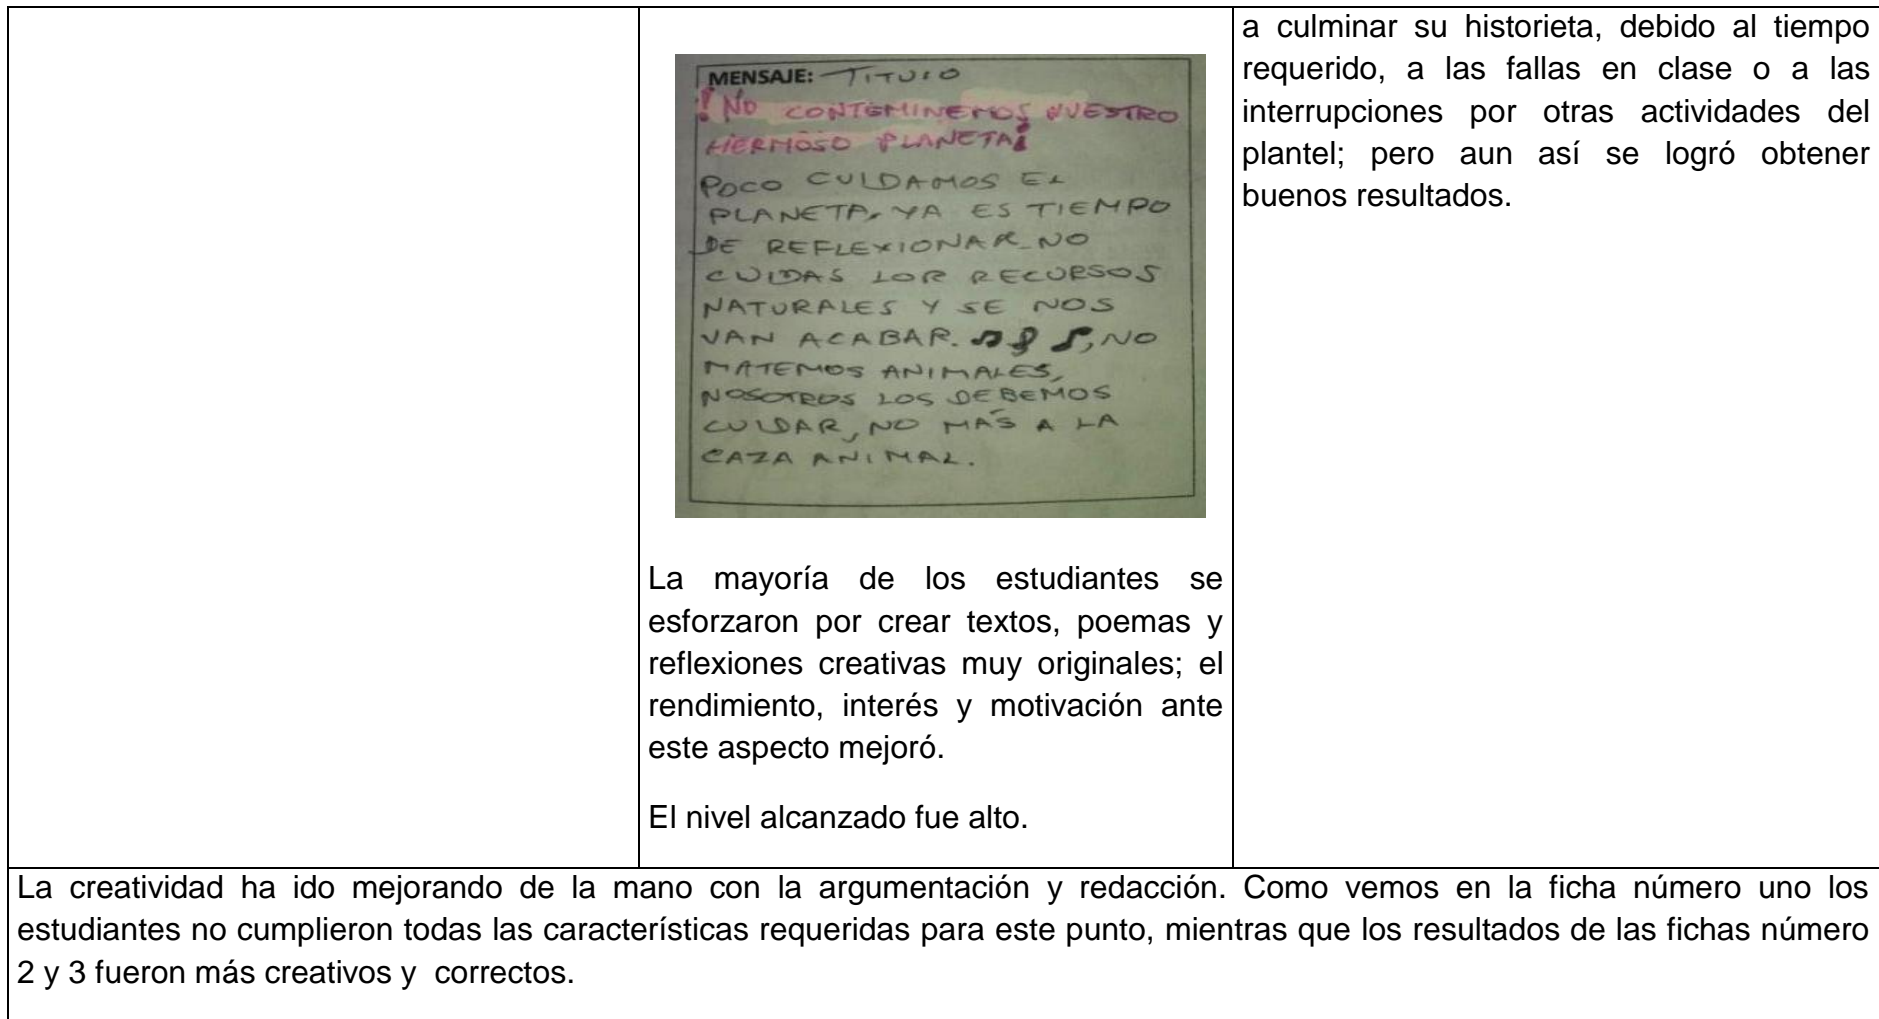 MENSAJE: TITULO
! NO CONTEMINEMOS NUESTRO
HERMOSO PLANETA!
POCO CUIDAMOS EL
PLANETA, YA ES TIEMPO
DE REFLEXIONAR NO
CUIDAS LOR RECURSOS
NATURALES Y SE NOS
VAN ACABAR. , NO
MATEMOS ANIMALES,
NOSOTROS LOS DEBEMOS
CUIDAR, NO MÁS A LA
CAZA ANIMAL.
La mayoría de los estudiantes se
esforzaron por crear textos, poemas y
reflexiones creativas muy originales; el
rendimiento, interés y motivación ante
este aspecto mejoró.
El nivel alcanzado fue alto.
a culminar su historieta, debido al tiempo
requerido, a las fallas en clase o a las
interrupciones por otras actividades del
plantel; pero aun así se logró obtener
buenos resultados.
La creatividad ha ido mejorando de la mano con la argumentación y redacción. Como vemos en la ficha número uno los
estudiantes no cumplieron todas las características requeridas para este punto, mientras que los resultados de las fichas número
2 y 3 fueron más creativos y correctos.